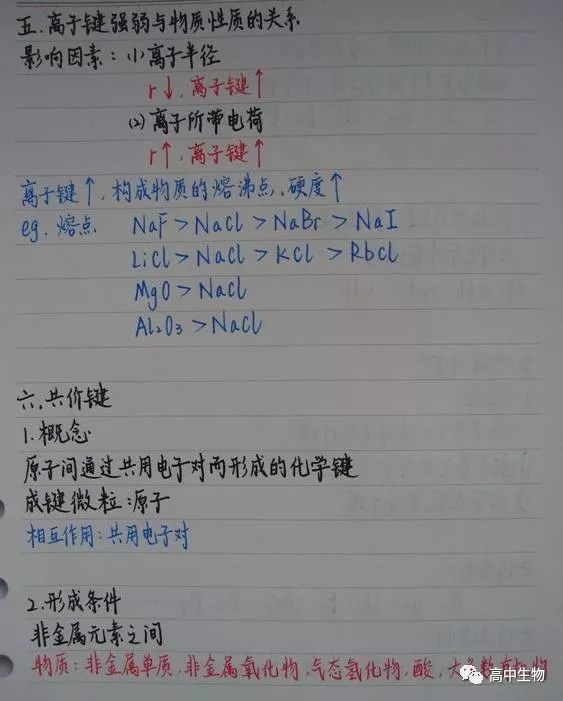 五.离子键强弱与物质性质的关系
影响因素:(1)离子半径
r↓,离子键↑
(2)离子所带电荷
r↑,离子键↑
离子键↑,构成物质的熔沸点、硬度↑
eg.熔点 NaF>NaCl>NaBr>NaI
LiCl>NaCl>KCl>RbCl
MgO>NaCl
Al₂O₃>NaCl
六.共价键
1.概念
原子间通过共用电子对而形成的化学键
成键微粒:原子
相互作用:共用电子对
2.形成条件
非金属元素之间
物质:非金属单质.非金属氧化物,气态氢化物,酸,大多数有机物
高中生物